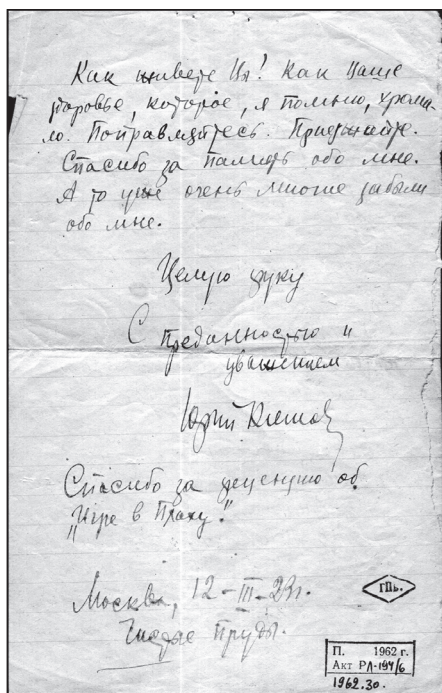 Как живете Вы! Как Ваше
здоровье, которое, я помню, хрома-
ло. Поправляйтесь. Приезжайте.
Спасибо за память обо мне.
А то уже очень многие забыли
обо мне.
Целую руку
С преданностью и
уважением
Юрий
Спасибо за рецензию об
„Игре в Плаху."
Москва, 12-III-23г.
Чистые Пруды.
ГПБ.
П. 1962 г.
Акт РЛ-194/6
1962.30.